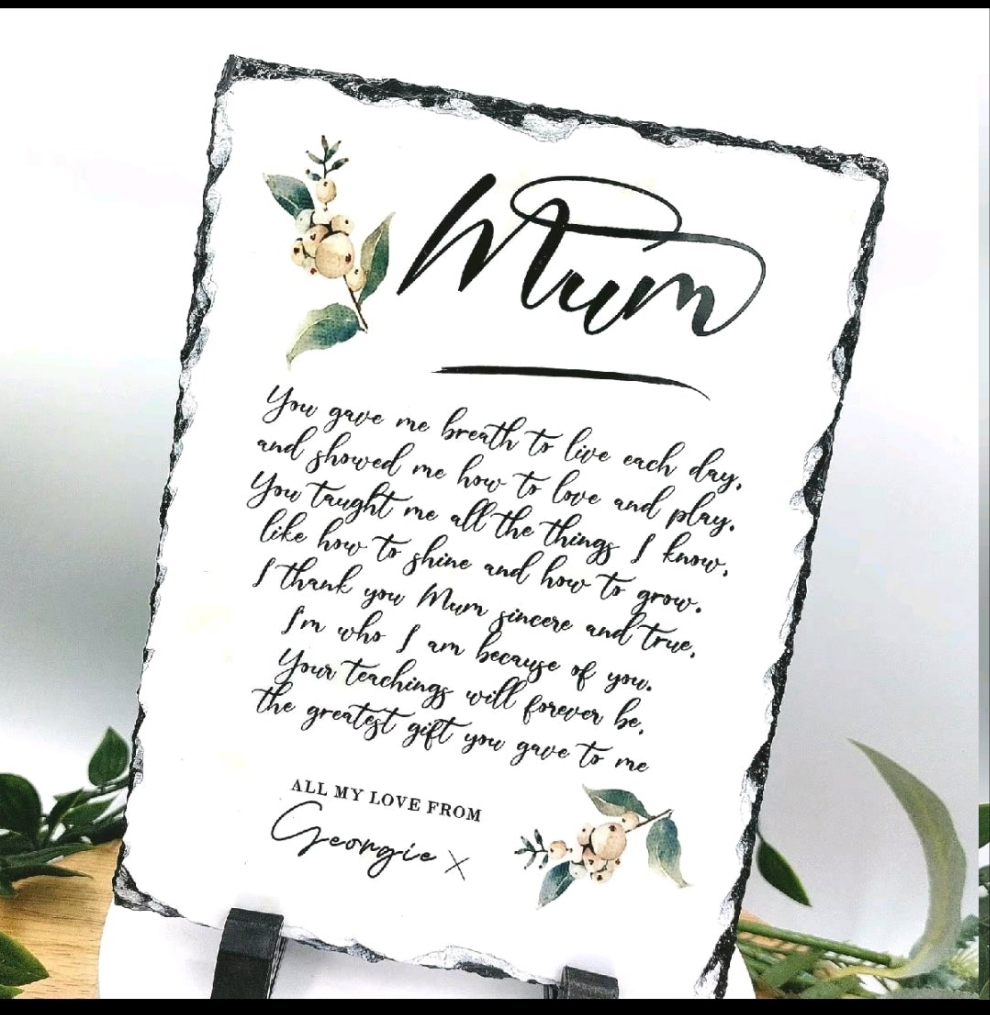 Mum
You gave me breath to live each day,
and showed me how to love and play.
You taught me all the things I know,
like how to shine and how to grow.
I thank you Mum sincere and true,
I'm who I am because of you.
Your teachings will forever be,
the greatest gift you gave to me
ALL MY LOVE FROM
Georgie x